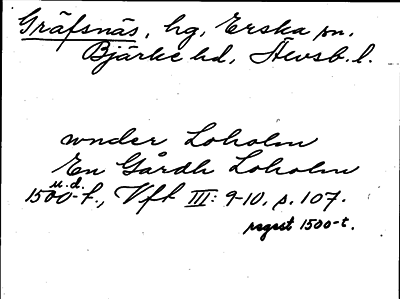 Gräfsnäs, hg, Erska sn.
Bjärke hd, Älvsb. l.
wnder Loholm
En Gårdh Loholm
u.d.
1500-t., Vft III: 9-10, s. 107.
regest 1500-t.